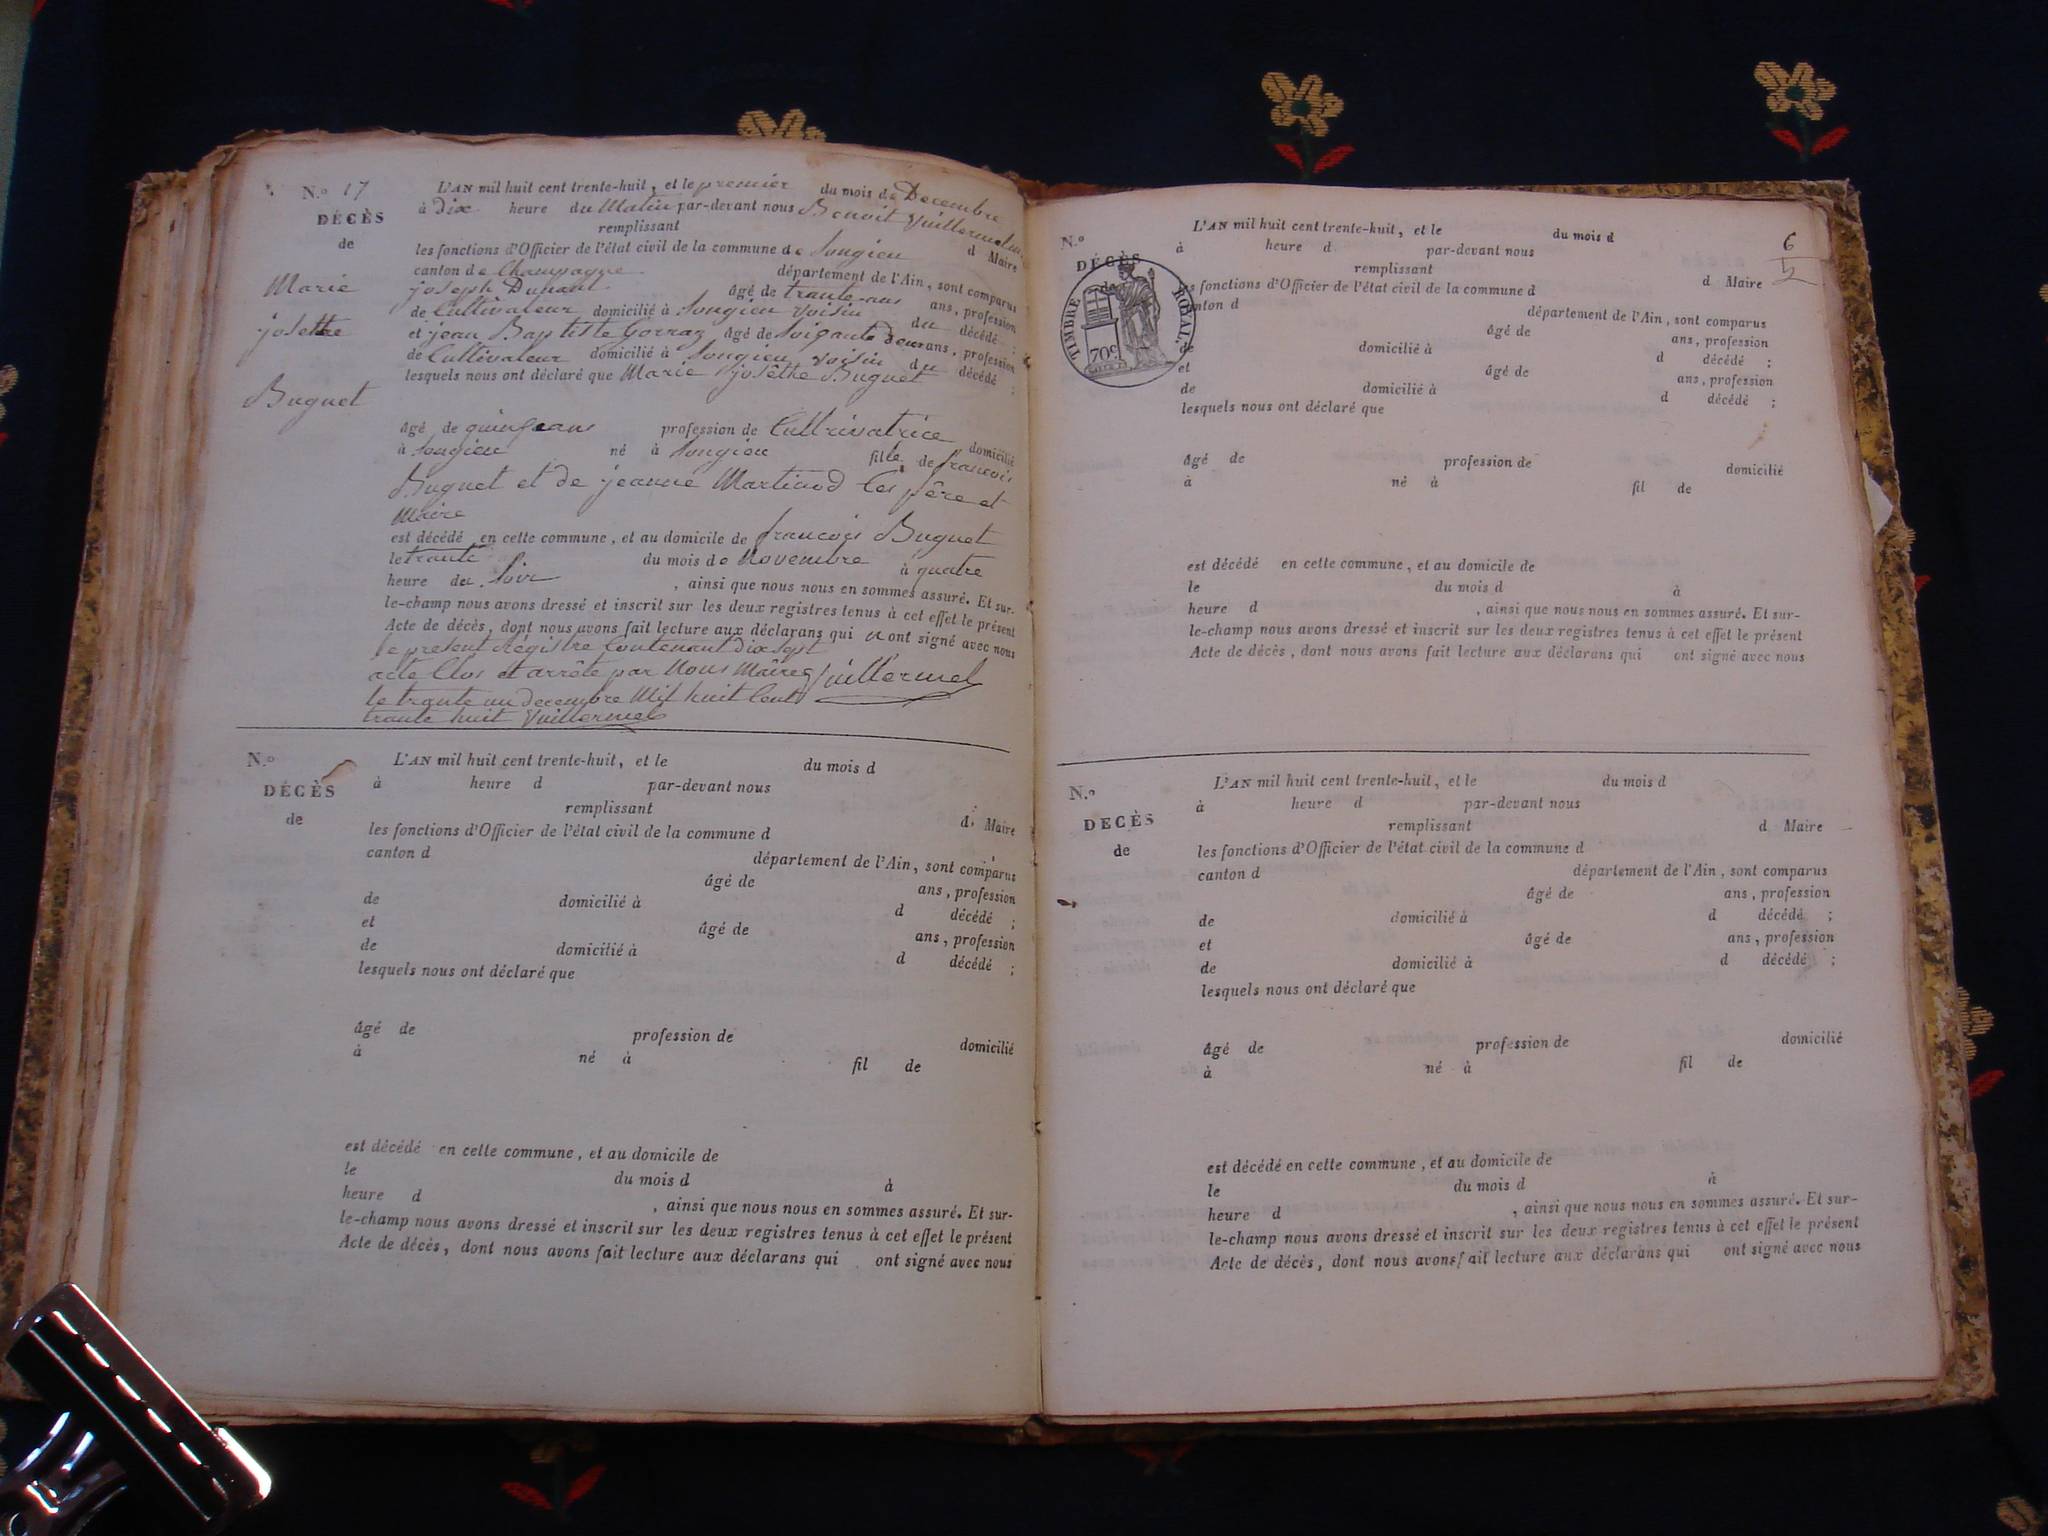 N.o 17
DÉCÈS
de
Marie
josette
Buguet
L'AN mil huit cent trente-huit, et le premier du mois de Decembre
à dix heure du Matin par-devant nous Benoit Vuillermel
remplissant
les fonctions d'Officier de l'état civil de la commune de Songieu d Maire
canton de Champagne département de l'Ain, sont comparus
joseph Dunant âgé de trante ans, profession
de Cultivateur domicilié à Songieu voisin du décédé ;
et jean Baptiste Gorraz âgé de Soigante deux ans, profession
de Cultivateur domicilié à Songieu voisin du décédé ;
lesquels nous ont déclaré que Marie josèthe Buguet
âgé de profession de Cultrivatrice domicilié
à Songieu né à Songieu fille de francois
Buguet et de jeanne Martinod les père et
Maire
est décédé en cette commune, et au domicile de francois Buguet
le trante du mois de Novembre à quatre
heure du Soir , ainsi que nous nous en sommes assuré. Et sur-
le-champ nous avons dressé et inscrit sur les deux registres tenus à cet effet le présent
Acte de décès, dont nous avons fait lecture aux déclarans qui n ont signé avec nous
le present Régistre Contenant dix sept
acte Clos et arrête par Nous Mâire Vuillermel
le trante un decembre Mil huit Cent
trante huit Vuillermel
N.o
DÉCÈS
de
L'AN mil huit cent trente-huit, et le du mois d
à heure d par-devant nous
remplissant
les fonctions d'Officier de l'état civil de la commune d d Maire
canton d département de l'Ain, sont comparus
âgé de ans, profession
de domicilié à d décédé ;
et âgé de ans, profession
de domicilié à d décédé ;
lesquels nous ont déclaré que
âgé de profession de domicilié
à né à fil de
est décédé en cette commune, et au domicile de
le du mois d à
heure d , ainsi que nous nous en sommes assuré. Et sur-
le-champ nous avons dressé et inscrit sur les deux registres tenus à cet effet le présent
Acte de décès, dont nous avons fait lecture aux déclarans qui ont signé avec nous
6
N.o
DÉCÈS
TIMBRE ROYAL.
70c
L'AN mil huit cent trente-huit, et le du mois d
à heure d par-devant nous
remplissant
les fonctions d'Officier de l'état civil de la commune d d Maire
canton d département de l'Ain, sont comparus
âgé de ans, profession
de domicilié à d décédé ;
et âgé de ans, profession
de domicilié à d décédé ;
lesquels nous ont déclaré que
âgé de profession de domicilié
à né à fil de
est décédé en cette commune, et au domicile de
le du mois d à
heure d , ainsi que nous nous en sommes assuré. Et sur-
le-champ nous avons dressé et inscrit sur les deux registres tenus à cet effet le présent
Acte de décès, dont nous avons fait lecture aux déclarans qui ont signé avec nous
N.o
DECÈS
de
L'AN mil huit cent trente-huit, et le du mois d
à heure d par-devant nous
remplissant d Maire
les fonctions d'Officier de l'état civil de la commune d
canton d département de l'Ain, sont comparus
âgé de ans, profession
de domicilié à d décédé ;
et âgé de ans, profession
de domicilié à d décédé ;
lesquels nous ont déclaré que
âgé de profession de domicilié
à né à fil de
est décédé en cette commune, et au domicile de
le du mois d à
heure d , ainsi que nous nous en sommes assuré. Et sur-
le-champ nous avons dressé et inscrit sur les deux registres tenus à cet effet le présent
Acte de décès, dont nous avons fait lecture aux déclarans qui ont signé avec nous